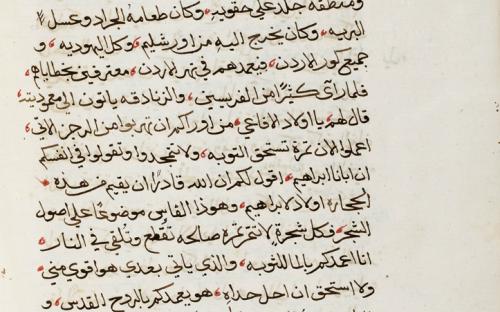 ومنطقه جلد علي حقويه وكان طعامه الجراد وعسل
البريه وكان يخرج اليه من اورشليم وكل اليهوديه و
جميع كور الاردن فيعمدهم في نهر الاردن معترفين بخطاياهم
فلما راى كثيرًا من الفريسين والزنادقه ياتون الي معموديته
قال لهم يا اولاد الافاعي من اوراكم ان تهربوا من الرجز الاتي
اعملوا الان ثمرة تستحق التوبه ولا تمجدوا وتقولوا في انفسكم
ان ابانا ابراهيم اقول لكم ان الله قادرًا ان يقيم من هذه
الحجاره اولاد لابراهيم وهوذا الفاس موضوعًا علي اصول
الشجر فكل شجرةٍ لا تثمر ثمرة صالحه تقطع وتلقي في النار
انا اعمدكم بالما للتوبه والذي ياتي بعدي هو اقوى مني
ولا استحق ان احل حداه هو يعمدكم بالروح القدس و